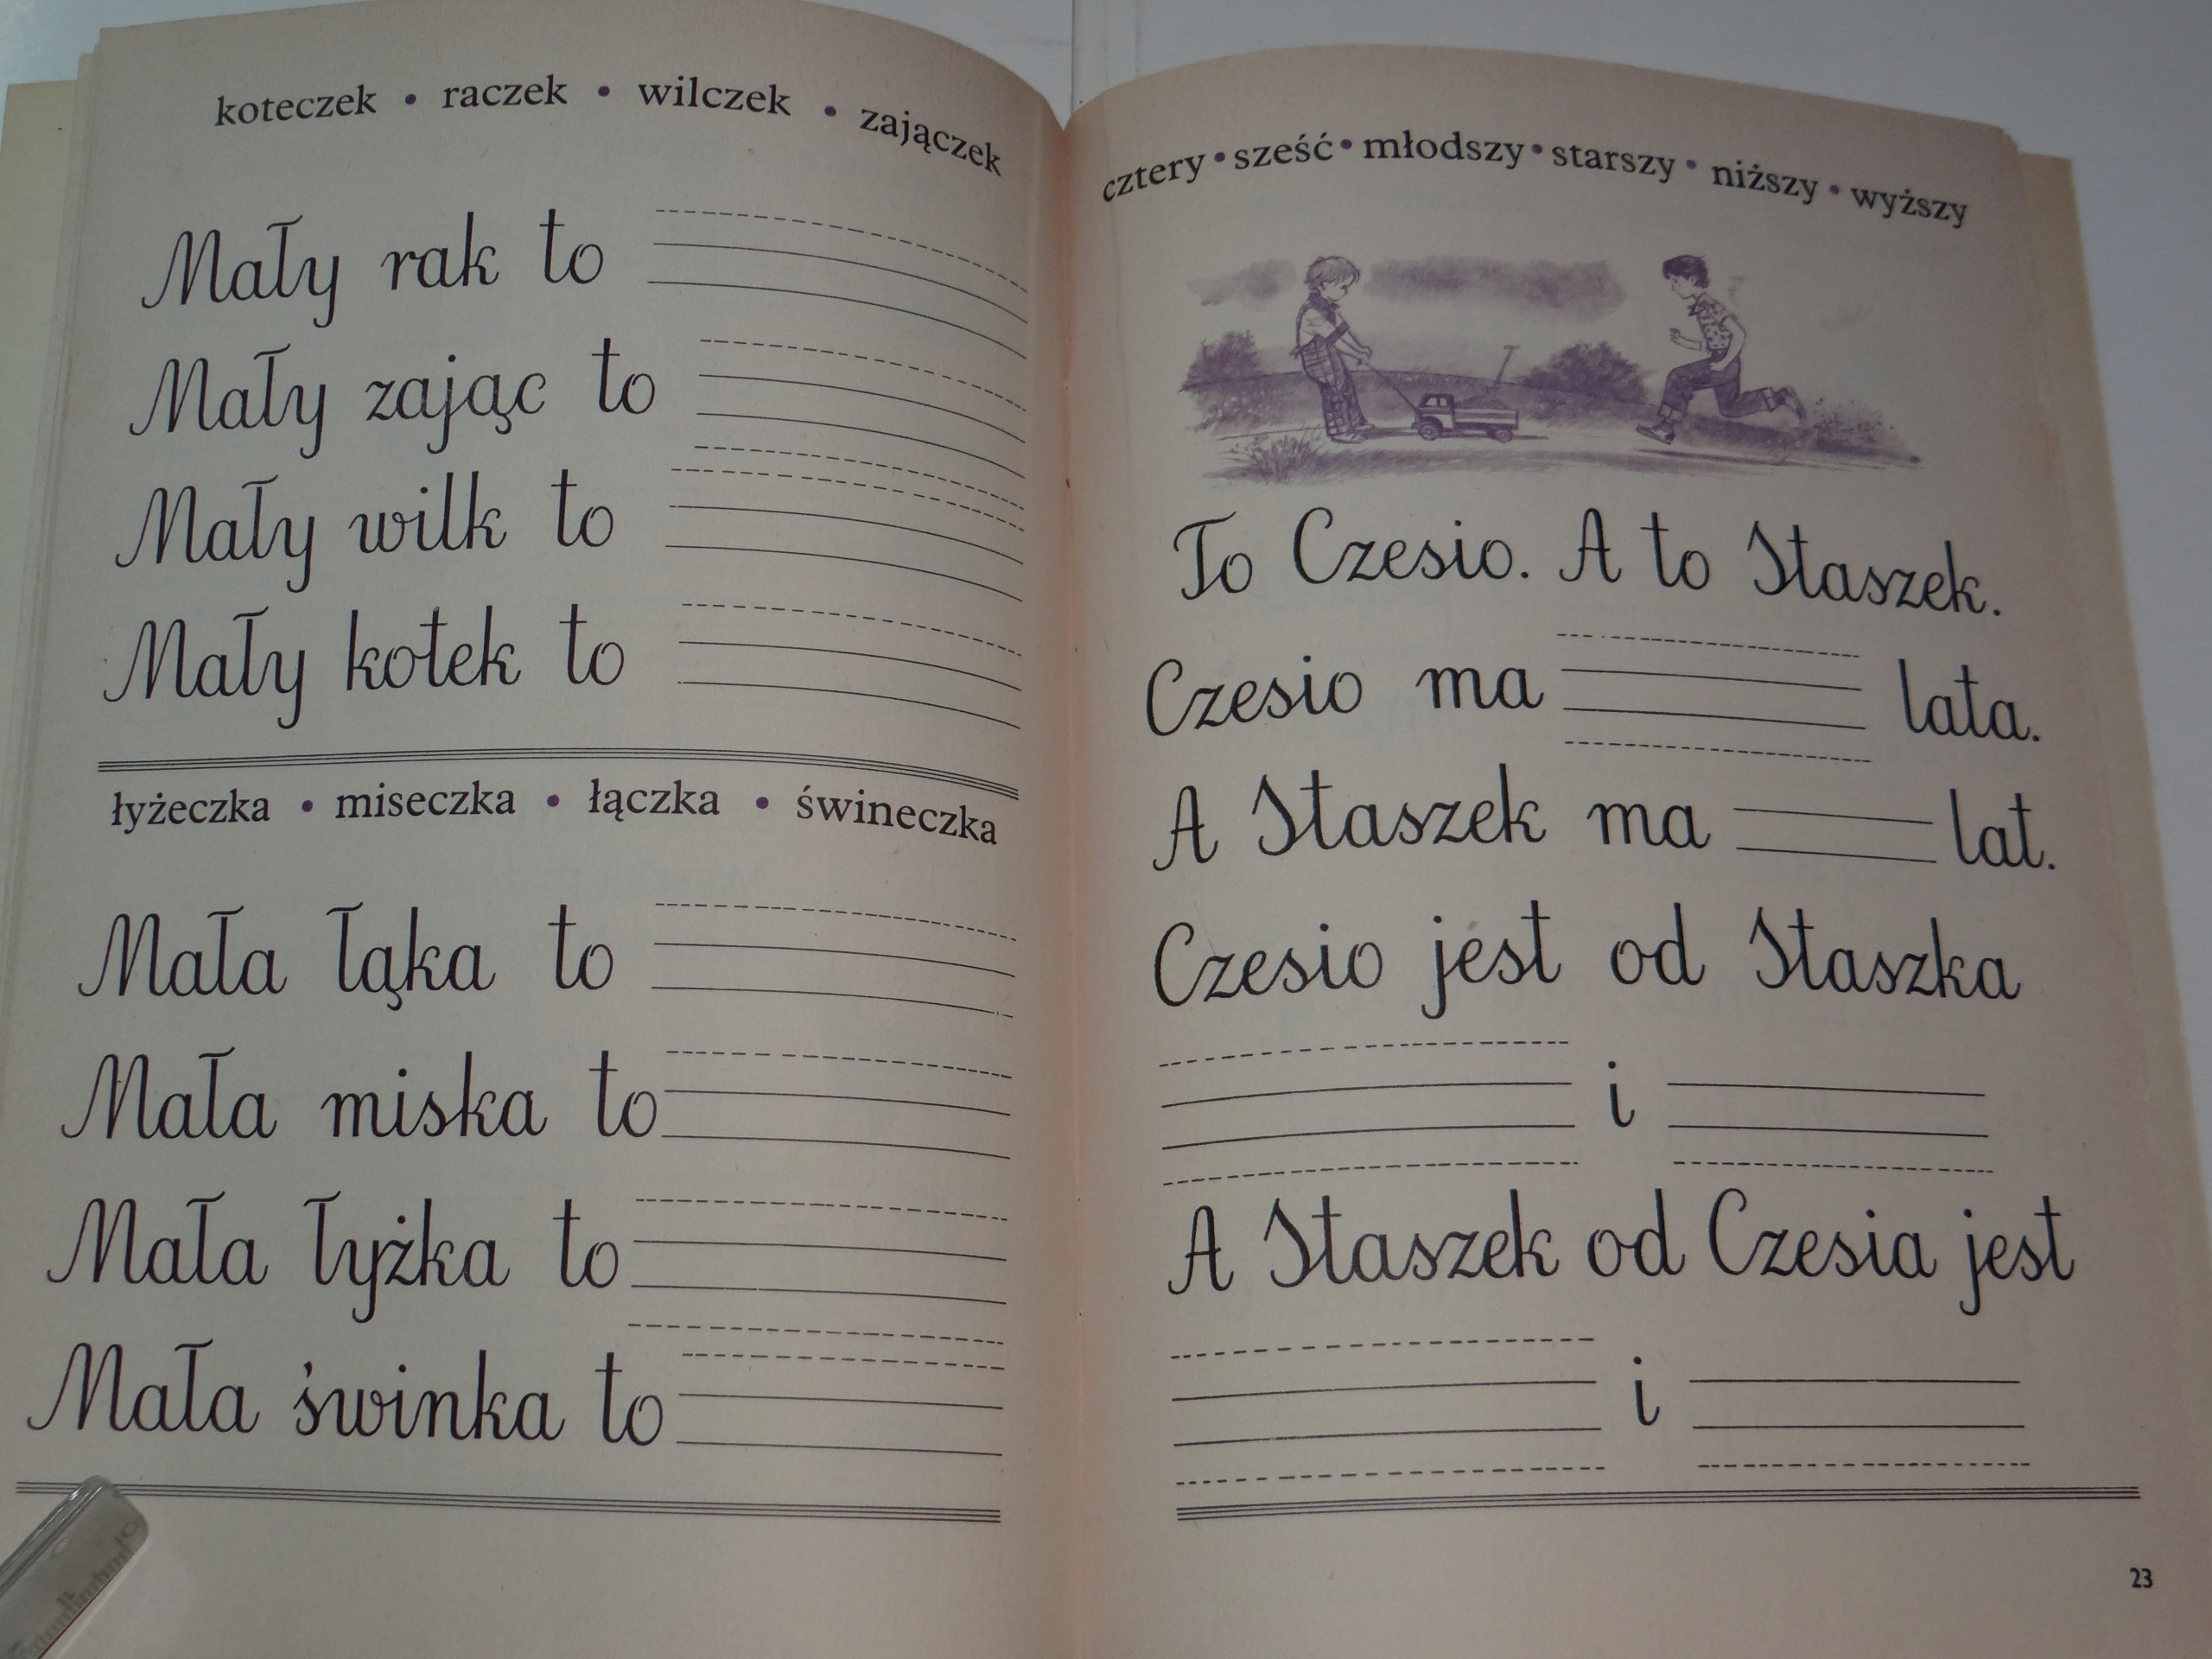 koteczek • raczek • wilczek • zajączek
Mały rak to
Mały zając to
Mały wilk to
Mały kotek to
łyżeczka • miseczka • łączka • świneczka
Mała łąka to
Mała miska to
Mała łyżka to
Mała świnka to
cztery • sześć • młodszy • starszy • niższy • wyższy
To Czesio. A to Staszek.
Czesio ma lata.
A Staszek ma lat.
Czesio jest od Staszka
i
A Staszek od Czesia jest
i
23